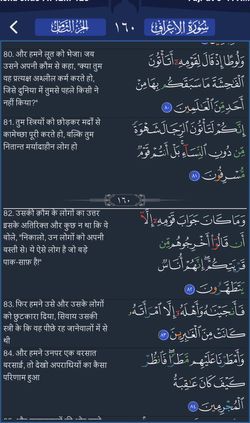 الجزء الثامن
١٦٠
سورة الأعراف
80. और हमने लूत को भेजा। जब
उसने अपनी क़ौम से कहा, "क्या तुम
वह प्रत्यक्ष अश्लील कर्म करते हो,
जिसे दुनिया में तुमसे पहले किसी ने
नहीं किया?"
وَلُوطًا إِذْ قَالَ لِقَوْمِهِۦٓ أَتَأْتُونَ
ٱلْفَـٰحِشَةَ مَا سَبَقَكُم بِهَا مِنْ
أَحَدٍ مِّنَ ٱلْعَـٰلَمِينَ ٨٠
81. तुम स्त्रियों को छोड़कर मर्दों से
कामेच्छा पूरी करते हो, बल्कि तुम
नितान्त मर्यादाहीन लोग हो
إِنَّكُمْ لَتَأْتُونَ ٱلرِّجَالَ شَهْوَةً
مِّن دُونِ ٱلنِّسَآءِ بَلْ أَنتُمْ قَوْمٌ
مُّسْرِفُونَ ٨١
١٦٠
82. उसकी क़ौम के लोगों का उत्तर
इसके अतिरिक्त और कुछ न था कि वे
बोले, "निकालो, उन लोगों को अपनी
बस्ती से। ये ऐसे लोग है जो बड़े
पाक-साफ़ है!"
وَمَا كَانَ جَوَابَ قَوْمِهِۦٓ إِلَّآ
أَن قَالُوٓا۟ أَخْرِجُوهُم مِّن
قَرْيَتِكُمْ إِنَّهُمْ أُنَاسٌ
يَتَطَهَّرُونَ ٨٢
83. फिर हमने उसे और उसके लोगों
को छुटकारा दिया, सिवाय उसकी
स्त्री के कि वह पीछे रह जानेवालों में से
थी
فَأَنجَيْنَـٰهُ وَأَهْلَهُۥٓ إِلَّا ٱمْرَأَتَهُۥ
كَانَتْ مِنَ ٱلْغَـٰبِرِينَ ٨٣
84. और हमने उनपर एक बरसात
बरसाई, तो देखो अपराधियों का कैसा
परिणाम हुआ
وَأَمْطَرْنَا عَلَيْهِم مَّطَرًا فَٱنظُرْ
كَيْفَ كَانَ عَـٰقِبَةُ
ٱلْمُجْرِمِينَ ٨٤